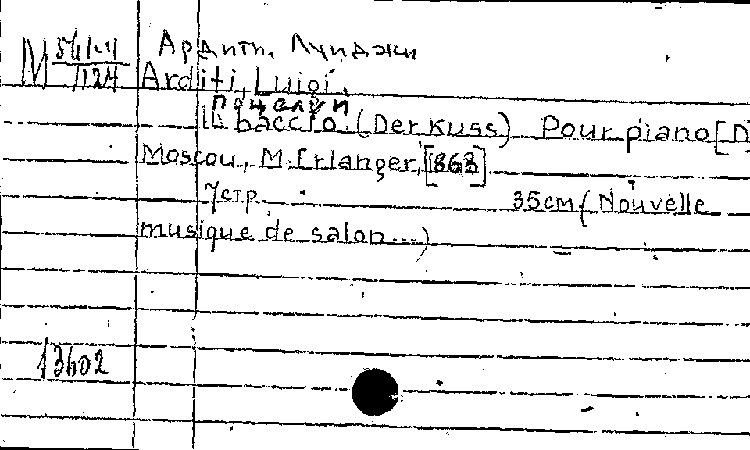 Ардити, Луиджи
M 1124
Arditi, Luigi.
Поцелуи
Il baccio. (Der Kuss) Pour piano [D
Moscou, M. Erlanger, [1863]
7 стр. 35 см (Nouvelle
musique de salon...)
13602